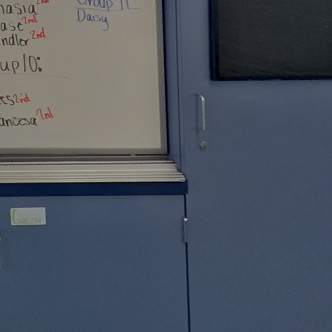 nasia 2nd
ase 2nd
ndler 2nd
up 10:
es 2nd
ancesa 2nd
Group 11
Daisy